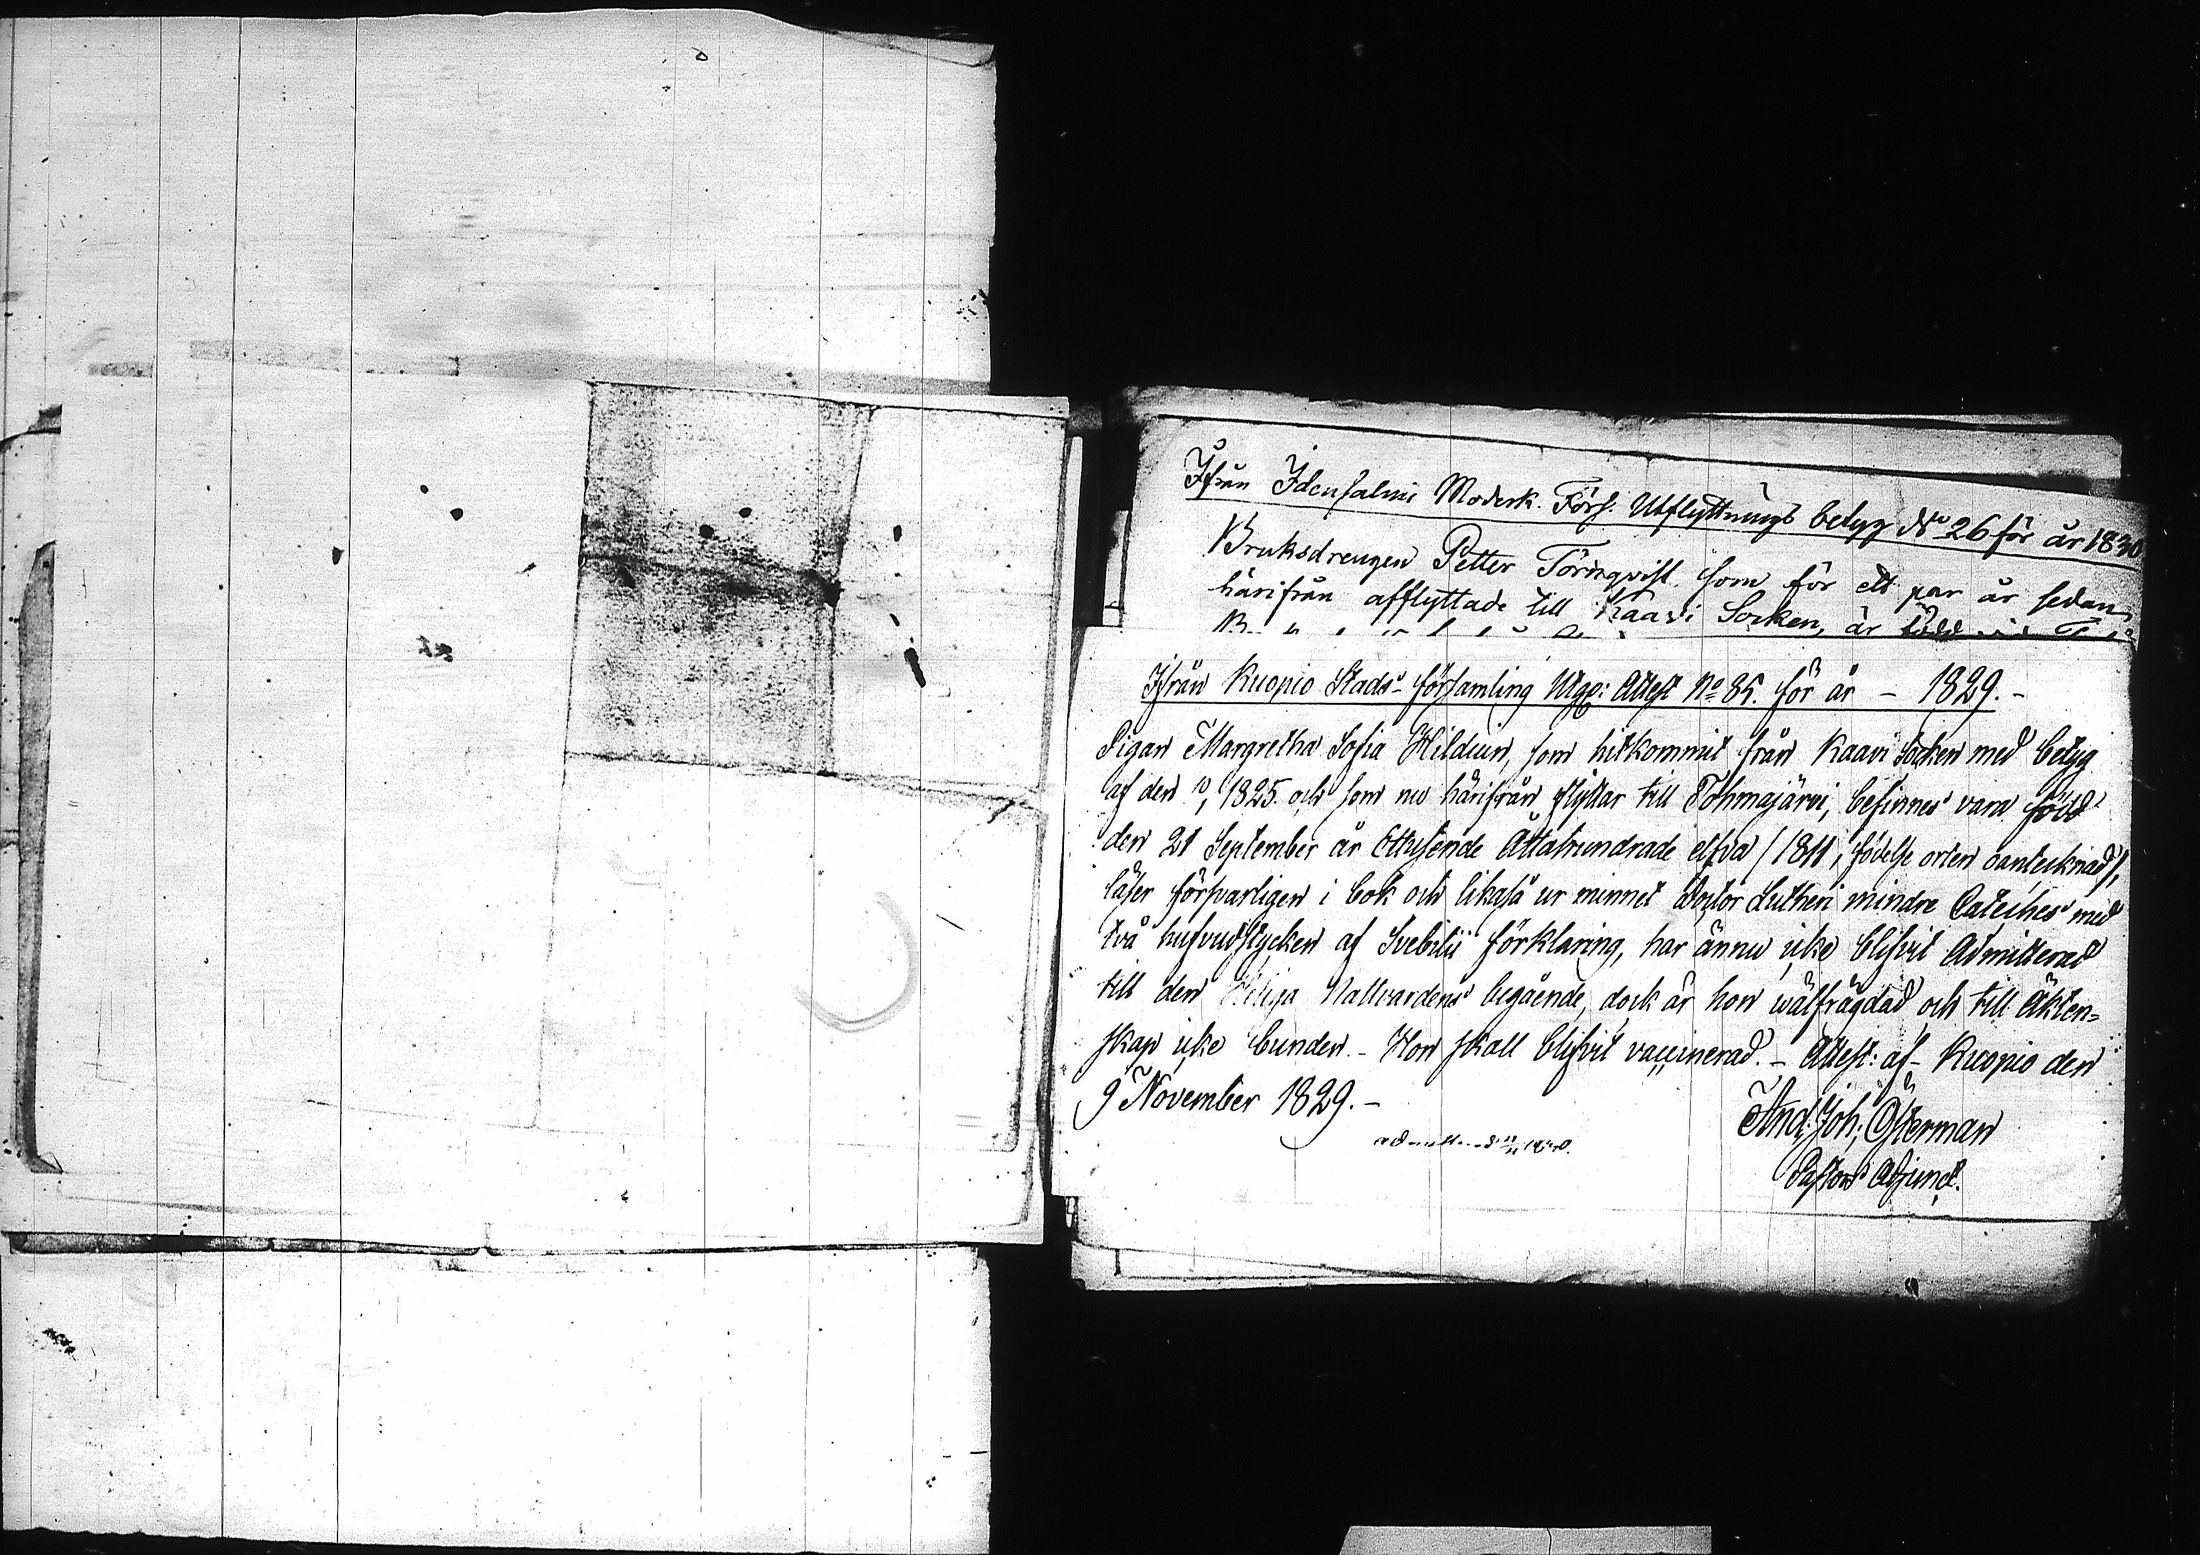 Ifrån Idensalmi Moderk. Förs. Utflyttnings betyg No 26 för år 1830
Bruksdrengen Petter Törnqvist som för ett par år sedan
härifrån afflyttade till Kaavi Socken, är född
Ifrån Kuopio Stads-församling Utgg: Attest No 85. för år - 1829. -
Pigan Margretha Sofia Hildeen, som hitkommit från Kaavi Socken med betyg
af den 1825. och som nu härifrån flyttar till Tohmajärvi, befinnes vara född
den 21 September år Ettusende Åttahundrade elfva /1811, födelse orten oantecknad/,
läser försvarligen i bok och likaså ur minnet Doctor Lutheri mindre Cateches med
två hufvudstycken af Svebilii förklaring, har ännu icke blifvit Admitterad
till den Heliga Nattvardens begående, dock är hon wälfrägdad och till Äkten=
skap icke bunden. - Hon skall blifvit vaccinerad. - Attest: af Kuopio den
9 November 1829. -
And: Joh: Österman
Pastors Adjunct.